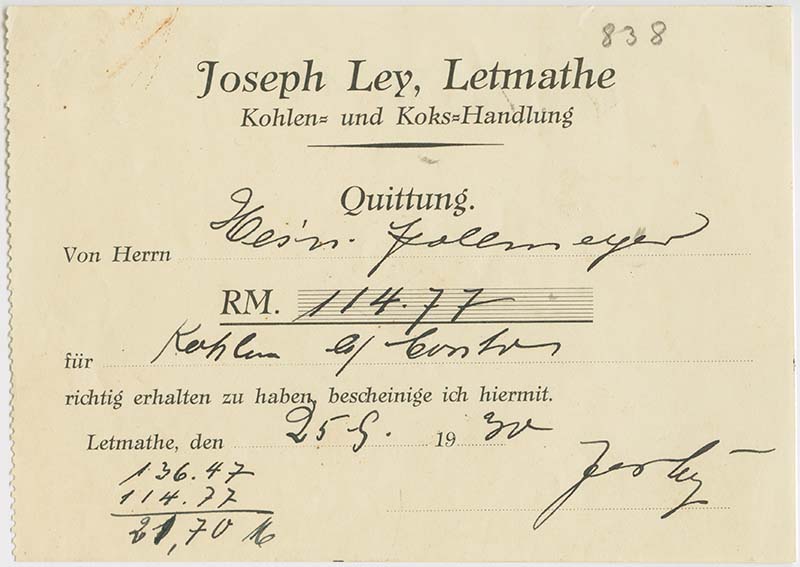 838
Joseph Ley, Letmathe
Kohlen= und Koks=Handlung
Quittung.
Von Herrn Hein.
RM. 114.77
für Kohlen
richtig erhalten zu haben, bescheinige ich hiermit.
Letmathe, den 25 9. 1930
136.47
114.77
21,70